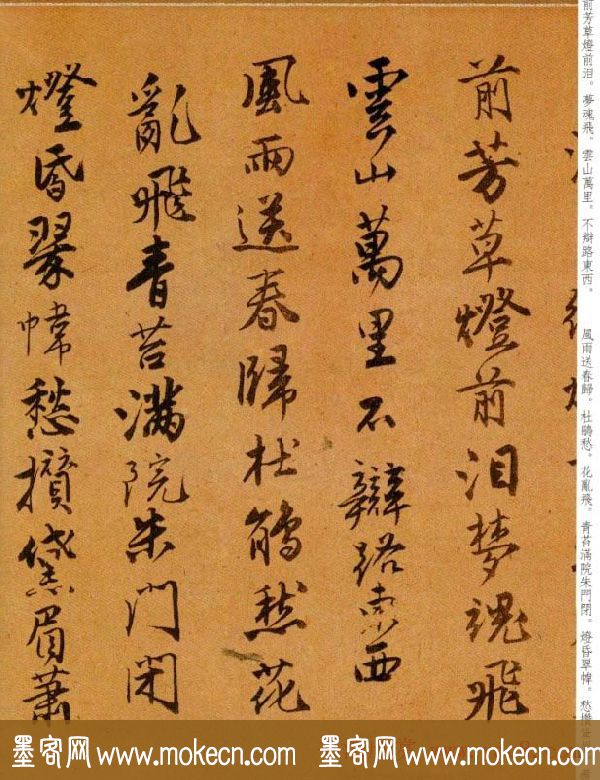 前芳草燈前泪。夢魂飛。雲山萬里。不辯路東西。　風雨送春歸。杜鵑愁。花亂飛。青苔滿院朱門閉。燈昏翠幃。愁攢
前芳草燈前泪夢魂飛
雲山萬里不辯路東西
風雨送春歸杜鵑愁花
亂飛青苔滿院朱門閉
燈昏翠幃愁攢黛眉蕭
墨客网 www.mokecn.com 墨客网 www.mokecn.com